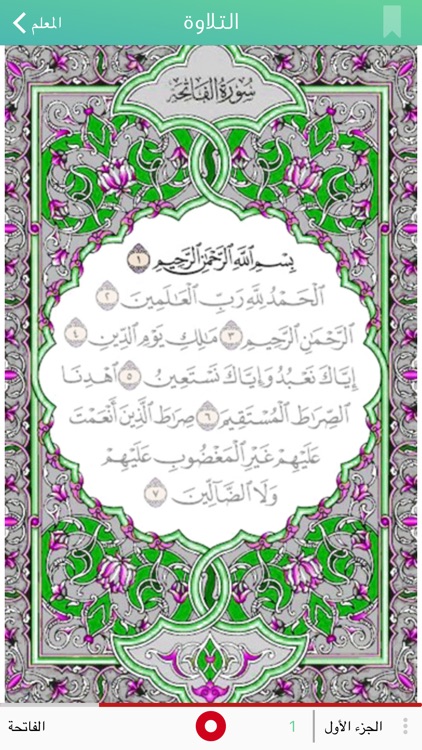 المعلم
التلاوة
سُورَةُ الفَاتِحَةِ
بِسْمِ ٱللَّهِ ٱلرَّحْمَٰنِ ٱلرَّحِيمِ ١
ٱلْحَمْدُ لِلَّهِ رَبِّ ٱلْعَٰلَمِينَ ٢
ٱلرَّحْمَٰنِ ٱلرَّحِيمِ ٣ مَٰلِكِ يَوْمِ ٱلدِّينِ ٤
إِيَّاكَ نَعْبُدُ وَإِيَّاكَ نَسْتَعِينُ ٥ ٱهْدِنَا
ٱلصِّرَٰطَ ٱلْمُسْتَقِيمَ ٦ صِرَٰطَ ٱلَّذِينَ أَنْعَمْتَ
عَلَيْهِمْ غَيْرِ ٱلْمَغْضُوبِ عَلَيْهِمْ
وَلَا ٱلضَّآلِّينَ ٧
الجزء الأول 1 الفاتحة